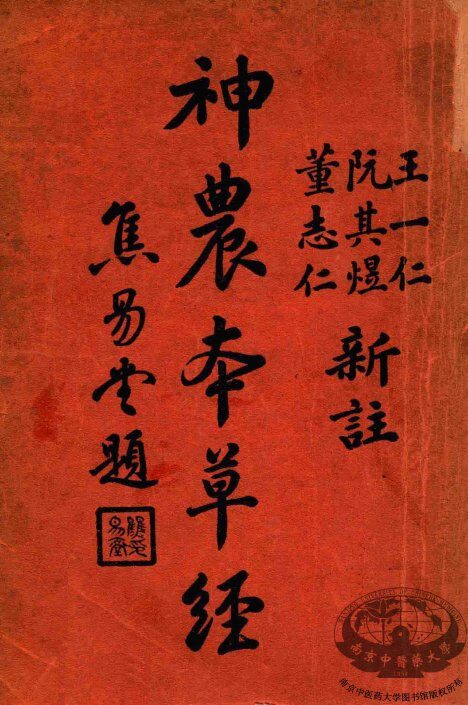 王一仁
阮其煜
董志仁
新註
神農本草經
焦易堂題
南京中醫藥大學
1954
南京中医药大学图书馆版权所有